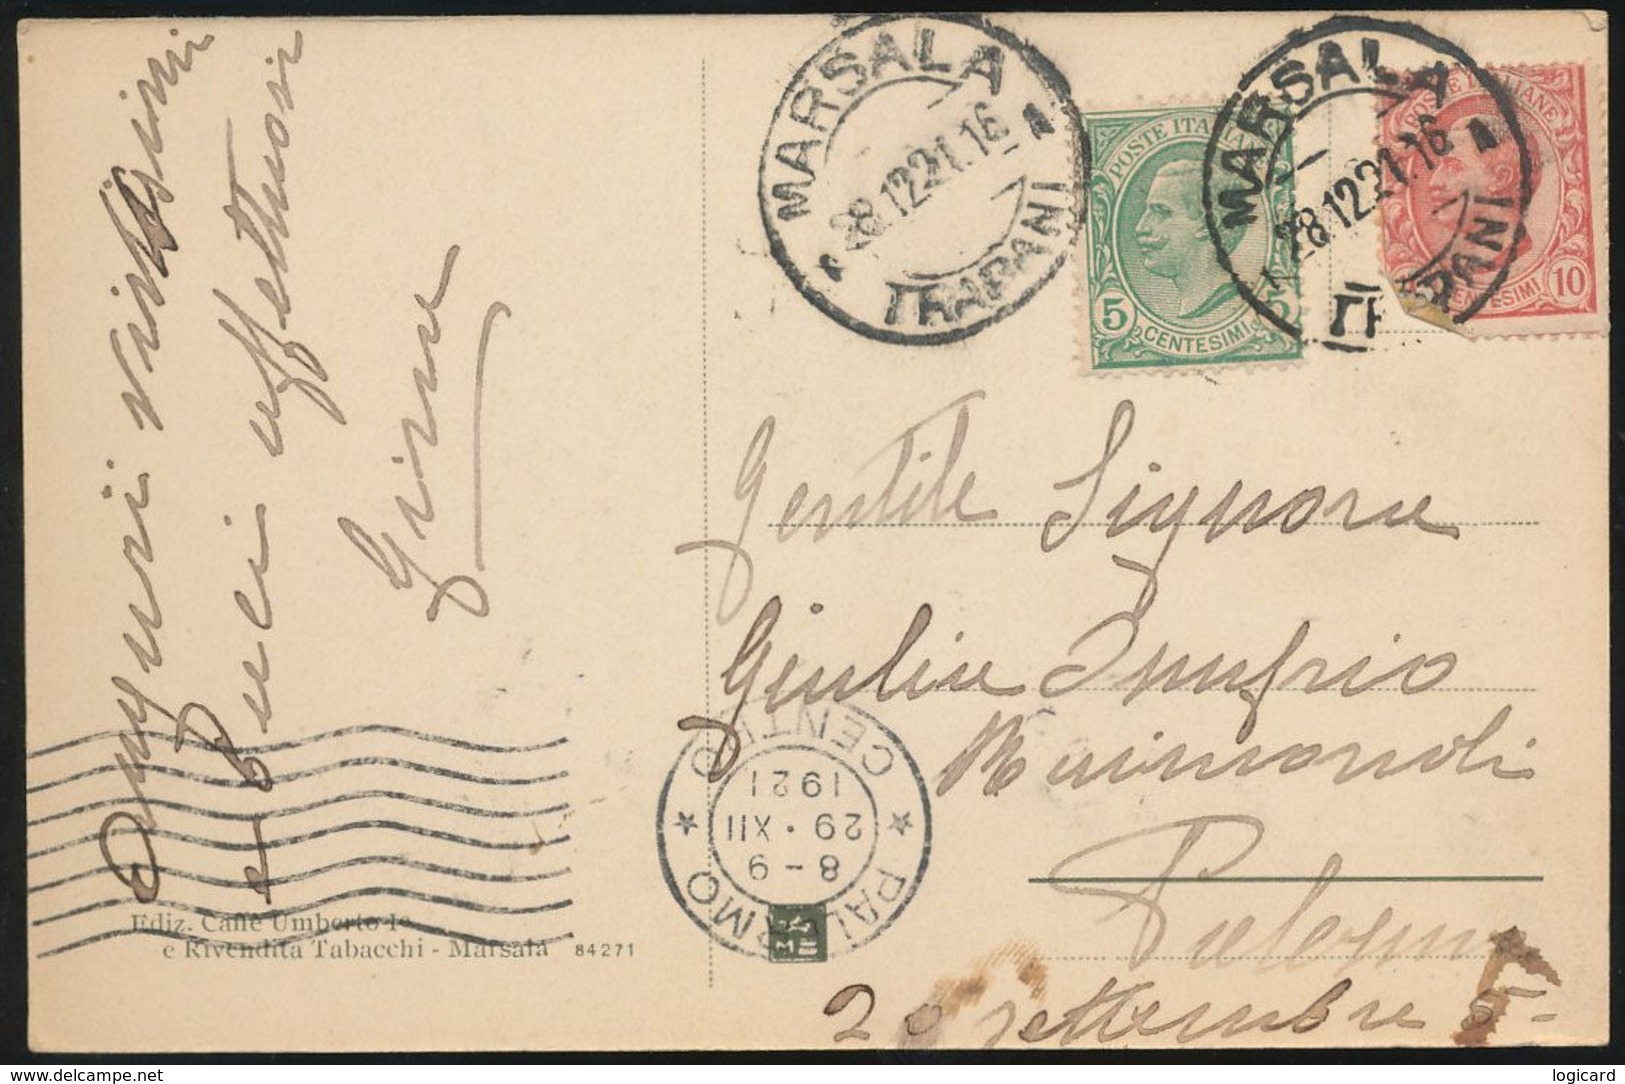 Auguri vivissimi
e baci affettuosi
Ediz. Caffè Umberto I°
e Rivendita Tabacchi - Marsala 84271
MARSALA
28.12.21.16
TRAPANI
POSTE ITALIANE
5 CENTESIMI 5
MARSALA
28.12.21.16
TRAPANI
POSTE ITALIANE
CENTESIMI 10
Gentile Signora
Giulia Inufrio
Raimondi
Palermo
20 settembre 5
PALERMO CENTRO
8-9
29 · XII
1921
delcampe.net
logicard